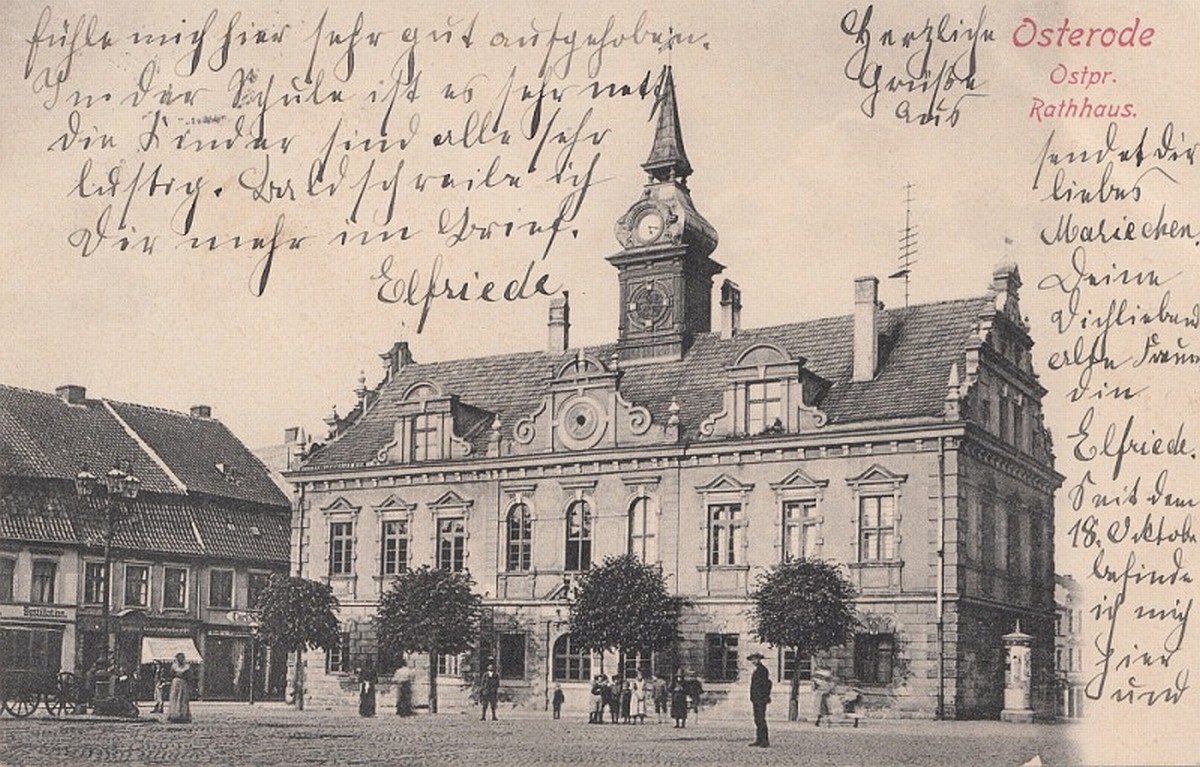 Herzliche
Grüße
aus
Osterode
Ostpr.
Rathhaus.
sendet dir
liebes
Mariechen,
Deine
Dichliebend
alte Freun
din
Elfriede.
Seit dem
18. Oktobe
befinde
ich mich
hier
und
fühle mich hier sehr gut aufgehoben.
In der Schule ist es sehr nett
die Kinder sind alle sehr
lustig. Bald schreibe ich
Dir mehr im Brief.
Elfriede